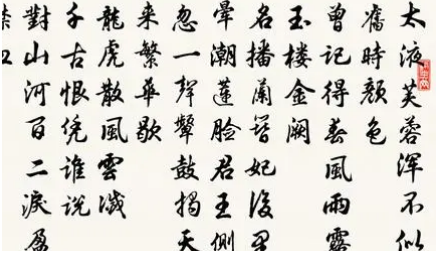 太液芙蓉浑不似
舊時顏色
曾記得春風雨露
玉樓金闕
名播蘭簪妃後里
暈潮蓮臉君王側
忽一聲鼙鼓揭天
來繁華歇
龍虎散風雲滅
千古恨凭誰說
對山河百二淚盈